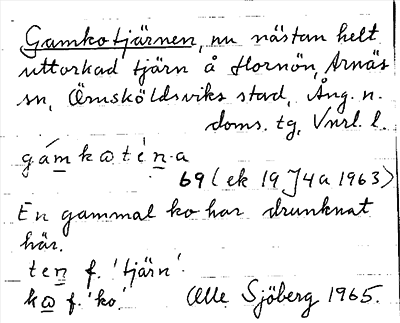 Gamkotjärnen, nu nästan helt
uttorkad tjärn å Hornön, Arnäs
sn, Örnsköldsviks stad, Ång. n.
doms. tg, Vnrl. l.
gámkɷtén·a
69 (ek 19 J4a 1963)
En gammal ko har drunknat
här.
ten f. 'tjärn'.
kɷ f. 'ko'. Olle Sjöberg 1965.